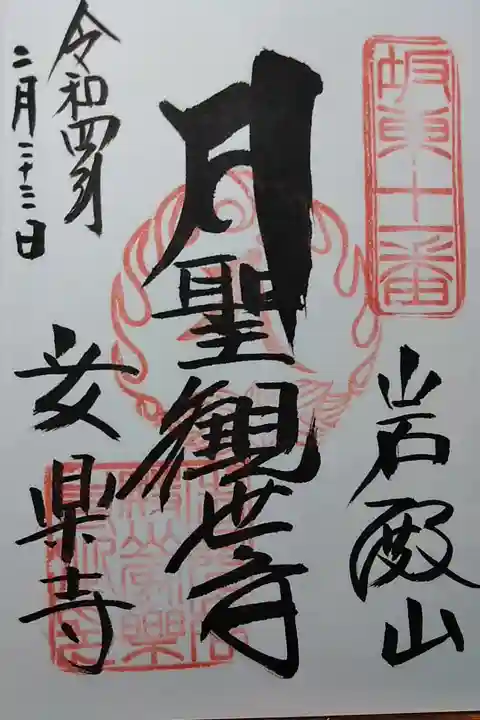 坂東十一番
岩殿山
月聖観世音
令和四年
二月二十二日
安楽寺